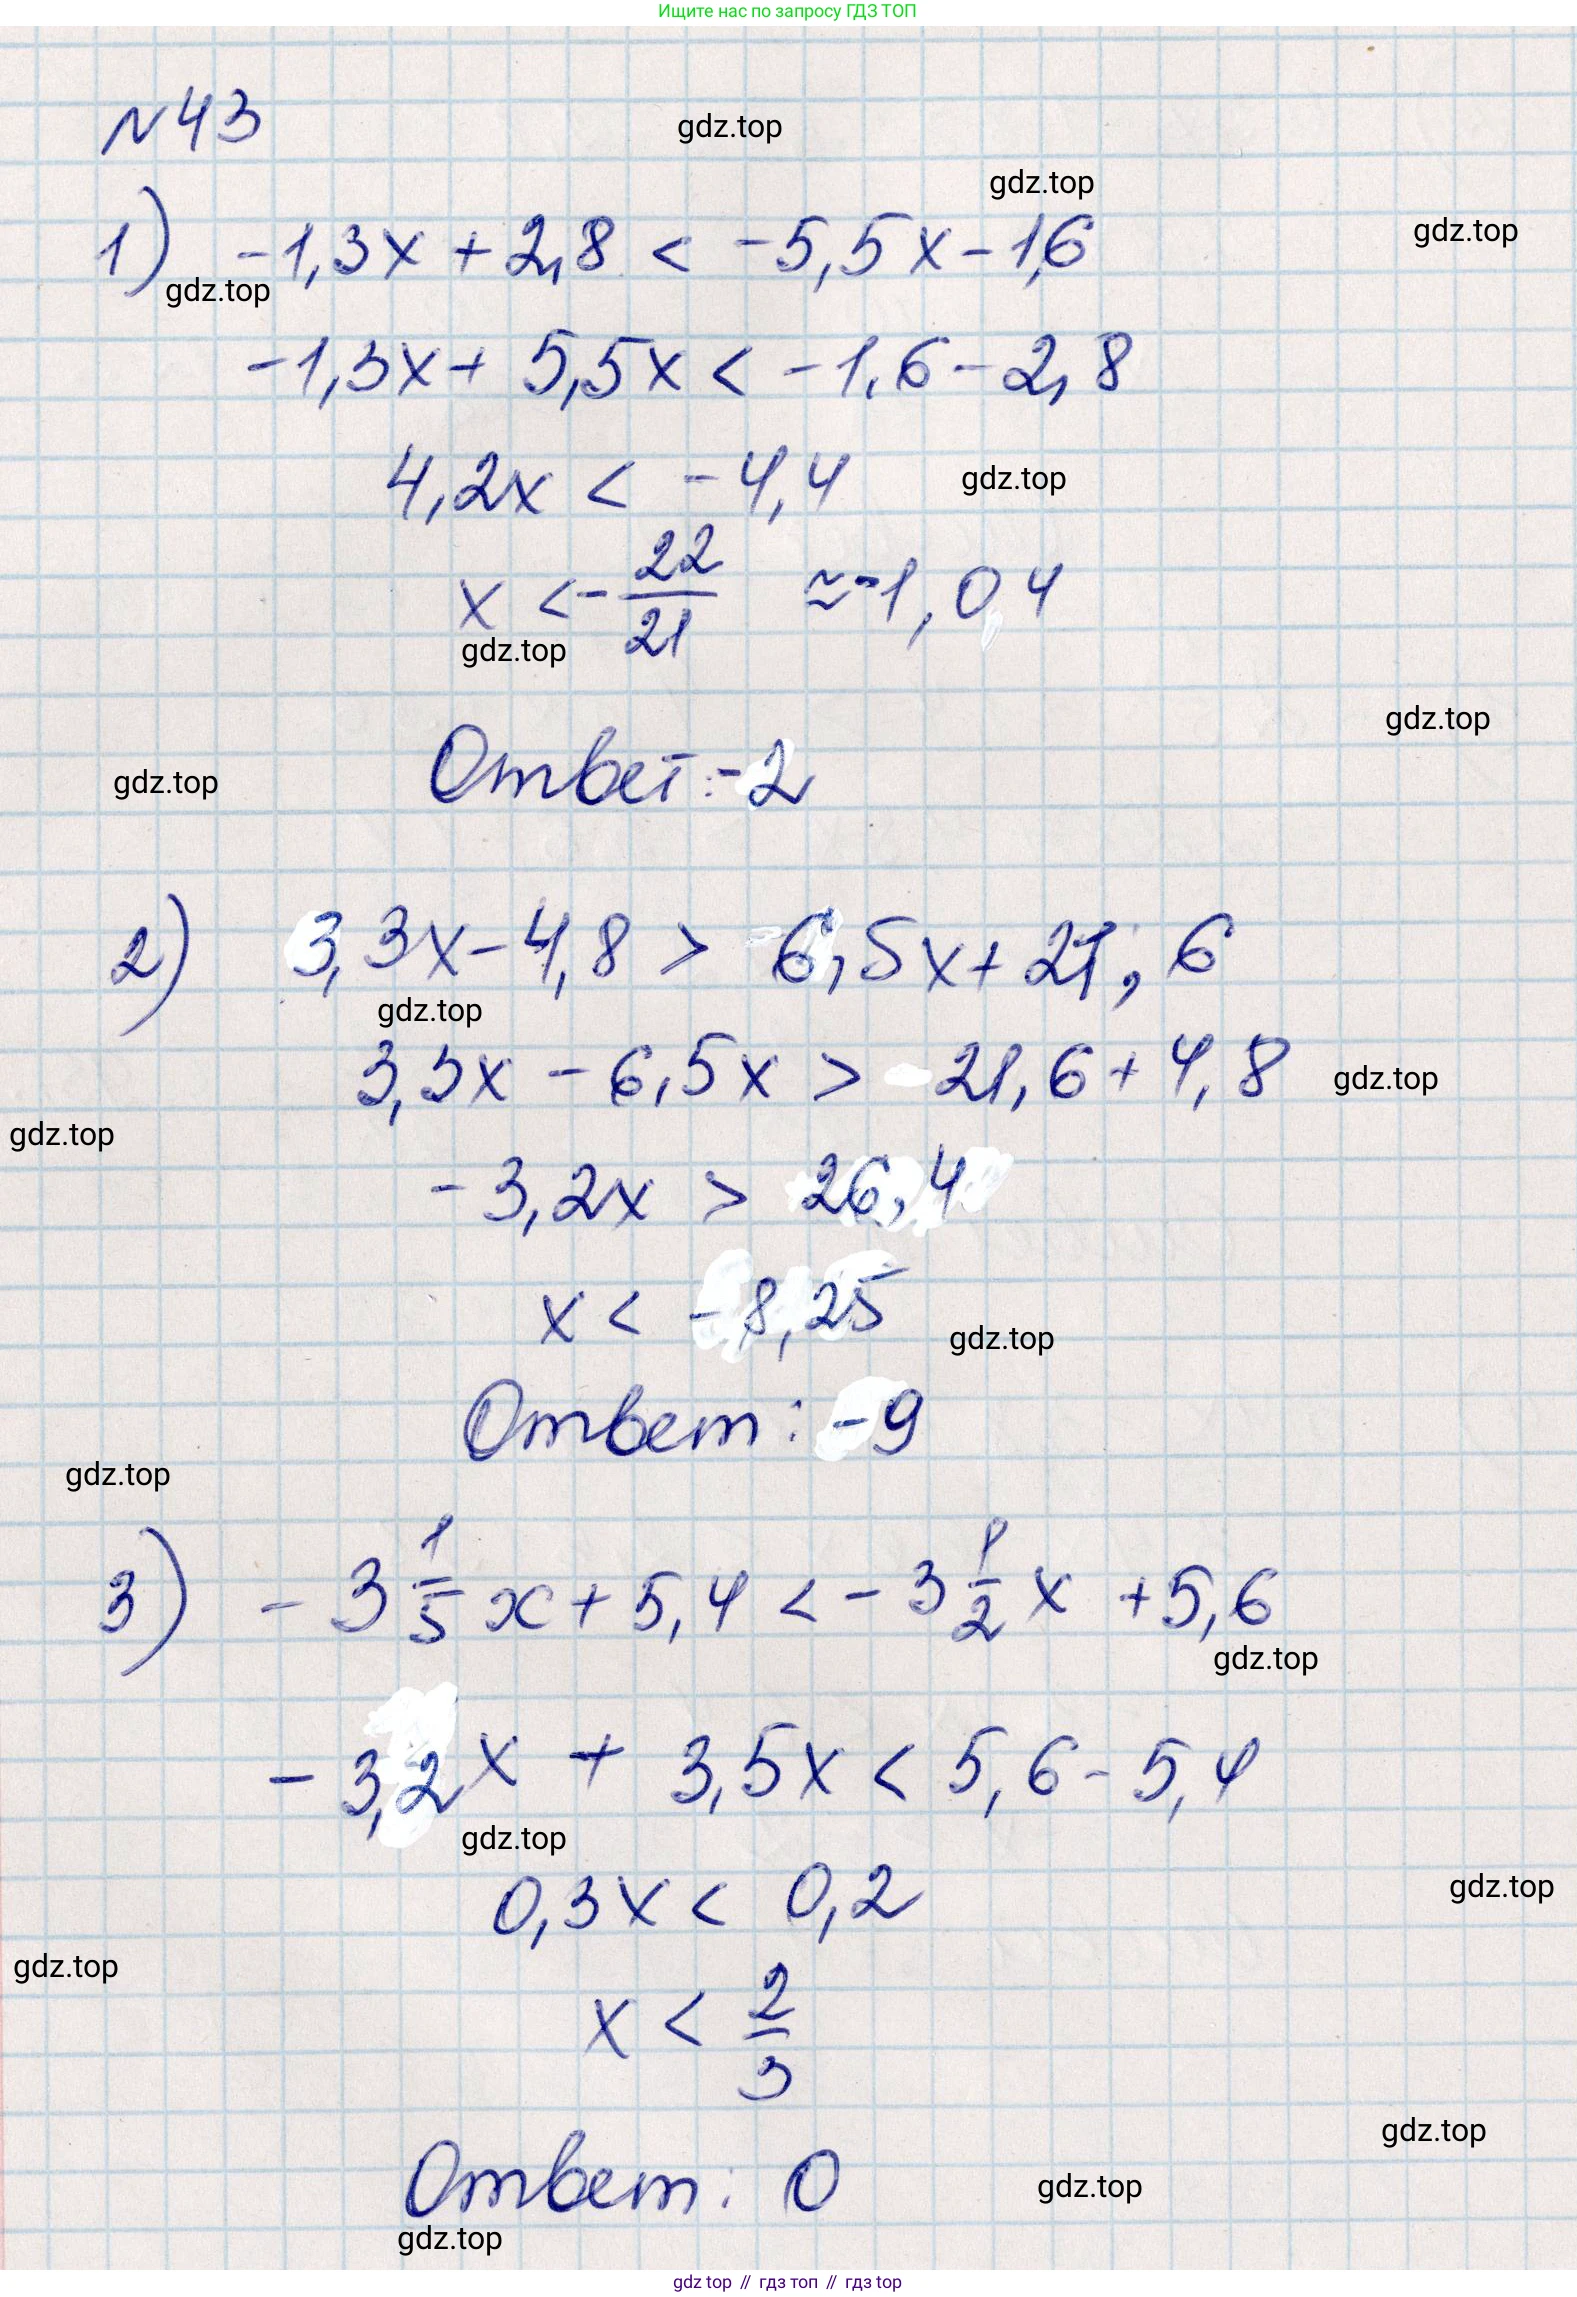 Ищите нас по запросу ГДЗ ТОП
№43
gdz.top
gdz.top
1) -1,3x + 2,8 < -5,5x - 1,6
gdz.top
gdz.top
-1,3x + 5,5x < -1,6 - 2,8
4,2x < -4,4
gdz.top
x < - 22/21 ≈ -1,04
gdz.top
gdz.top
Ответ: -2
gdz.top
2) 3,3x - 4,8 > 6,5x + 21,6
gdz.top
3,3x - 6,5x > 21,6 + 4,8
gdz.top
gdz.top
-3,2x > 26,4
x < -8,25
gdz.top
Ответ: -9
gdz.top
3) -3 1/5 x + 5,4 < -3 1/2 x + 5,6
gdz.top
-3,2x + 3,5x < 5,6 - 5,4
gdz.top
0,3x < 0,2
gdz.top
gdz.top
x < 2/3
gdz.top
Ответ: 0
gdz.top
gdz.top
gdz top // гдз топ // гдз top